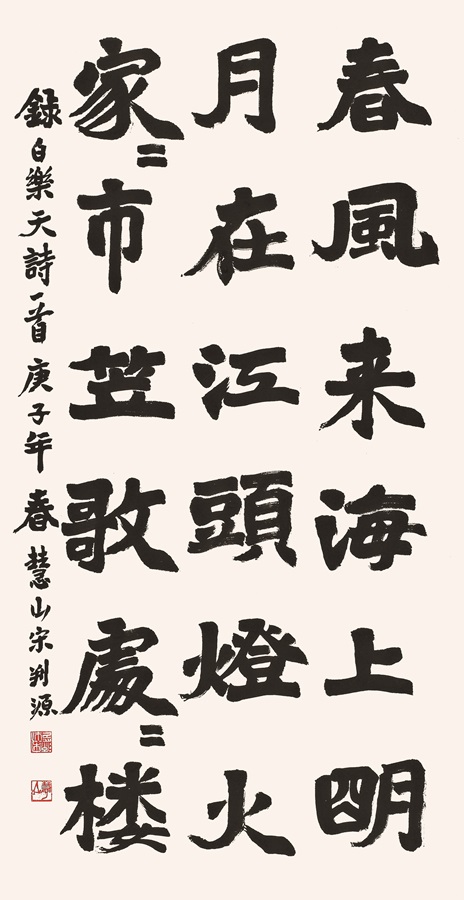 春風来海上明
月在江頭燈火
家〻市笠歌處〻楼
錄白樂天詩一首庚子年春慧山宋源